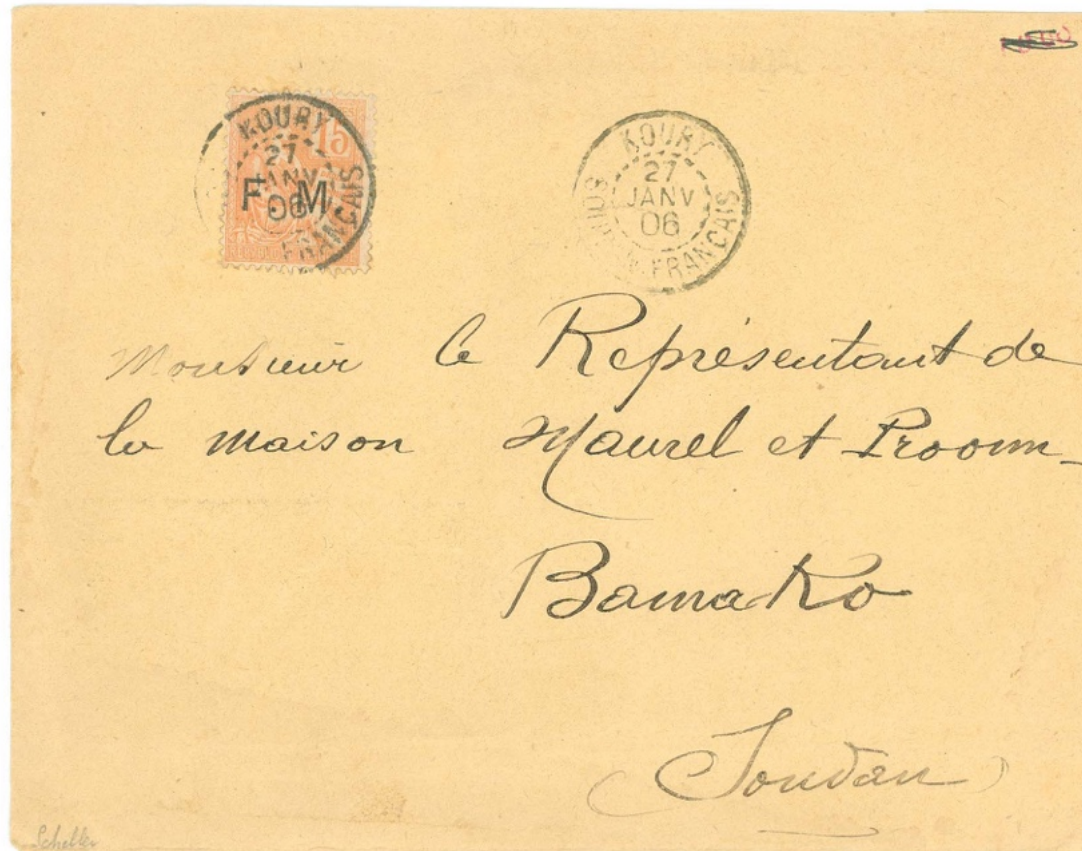 KOURY
27
JANV
06
FRANÇAIS
15
F. M.
KOURY
27
JANV
06
SOUDAN FRANÇAIS
Monsieur le Représentant de
la maison Maurel et Proom
Bamako
(Soudan)
Scheller